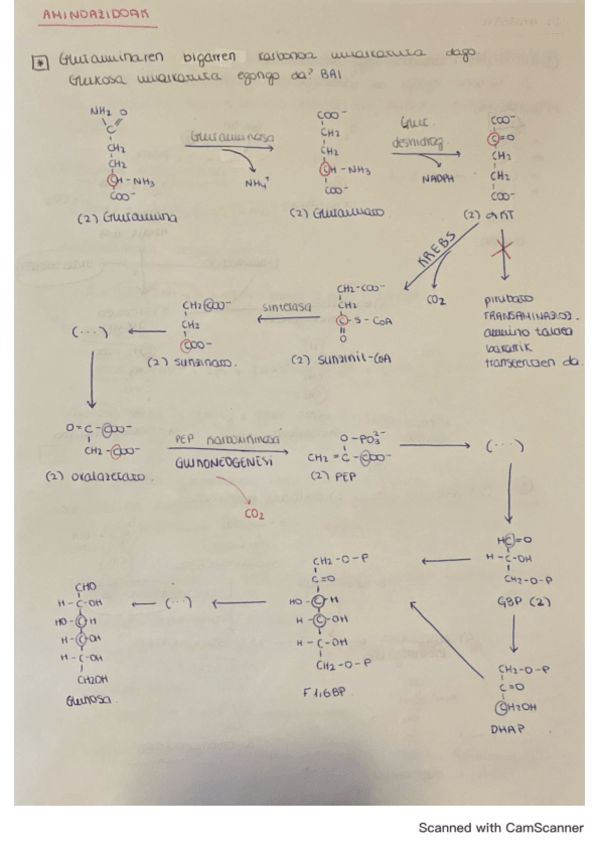 AMINOAZIDOAK
* Glutaminaren bigarren karbonoa markatuta dago
Glukosa markatuta egongo da? BAI
NH2 O
C
CH2
CH2
CH - NH3
COO-
(2) Glutamina
Glutaminasa
NH4+
COO-
CH2
CH2
CH - NH3
COO-
(2) Glutamato
Glut.
deshidrog
NADPH
COO-
C=O
CH2
CH2
COO-
(2) αKT
KREBS
CO2
pirubato
TRANSAMINAZIOZ.
amino taldea
bakarrik
transferitzen da.
CH2-COO-
CH2
C - S - CoA
O
(2) sukzinil-CoA
sintetasa
CH2COO-
CH2
COO-
(2) sukzinato.
(...)
O=C-COO-
CH2-COO-
(2) oxalazetato.
PEP karboxikinasa
GLUKONEOGENESI
CO2
O-PO3 2-
CH2=C-COO-
(2) PEP
(...)
HC=O
H-C-OH
CH2-O-P
G3P (2)
CH2-O-P
C=O
CH2OH
DHAP
CH2-O-P
C=O
HO-C-H
H-C-OH
H-C-OH
CH2-O-P
F1,6BP
(...)
CHO
H-C-OH
HO-C-H
H-C-OH
H-C-OH
CH2OH
Glukosa
Scanned with CamScanner